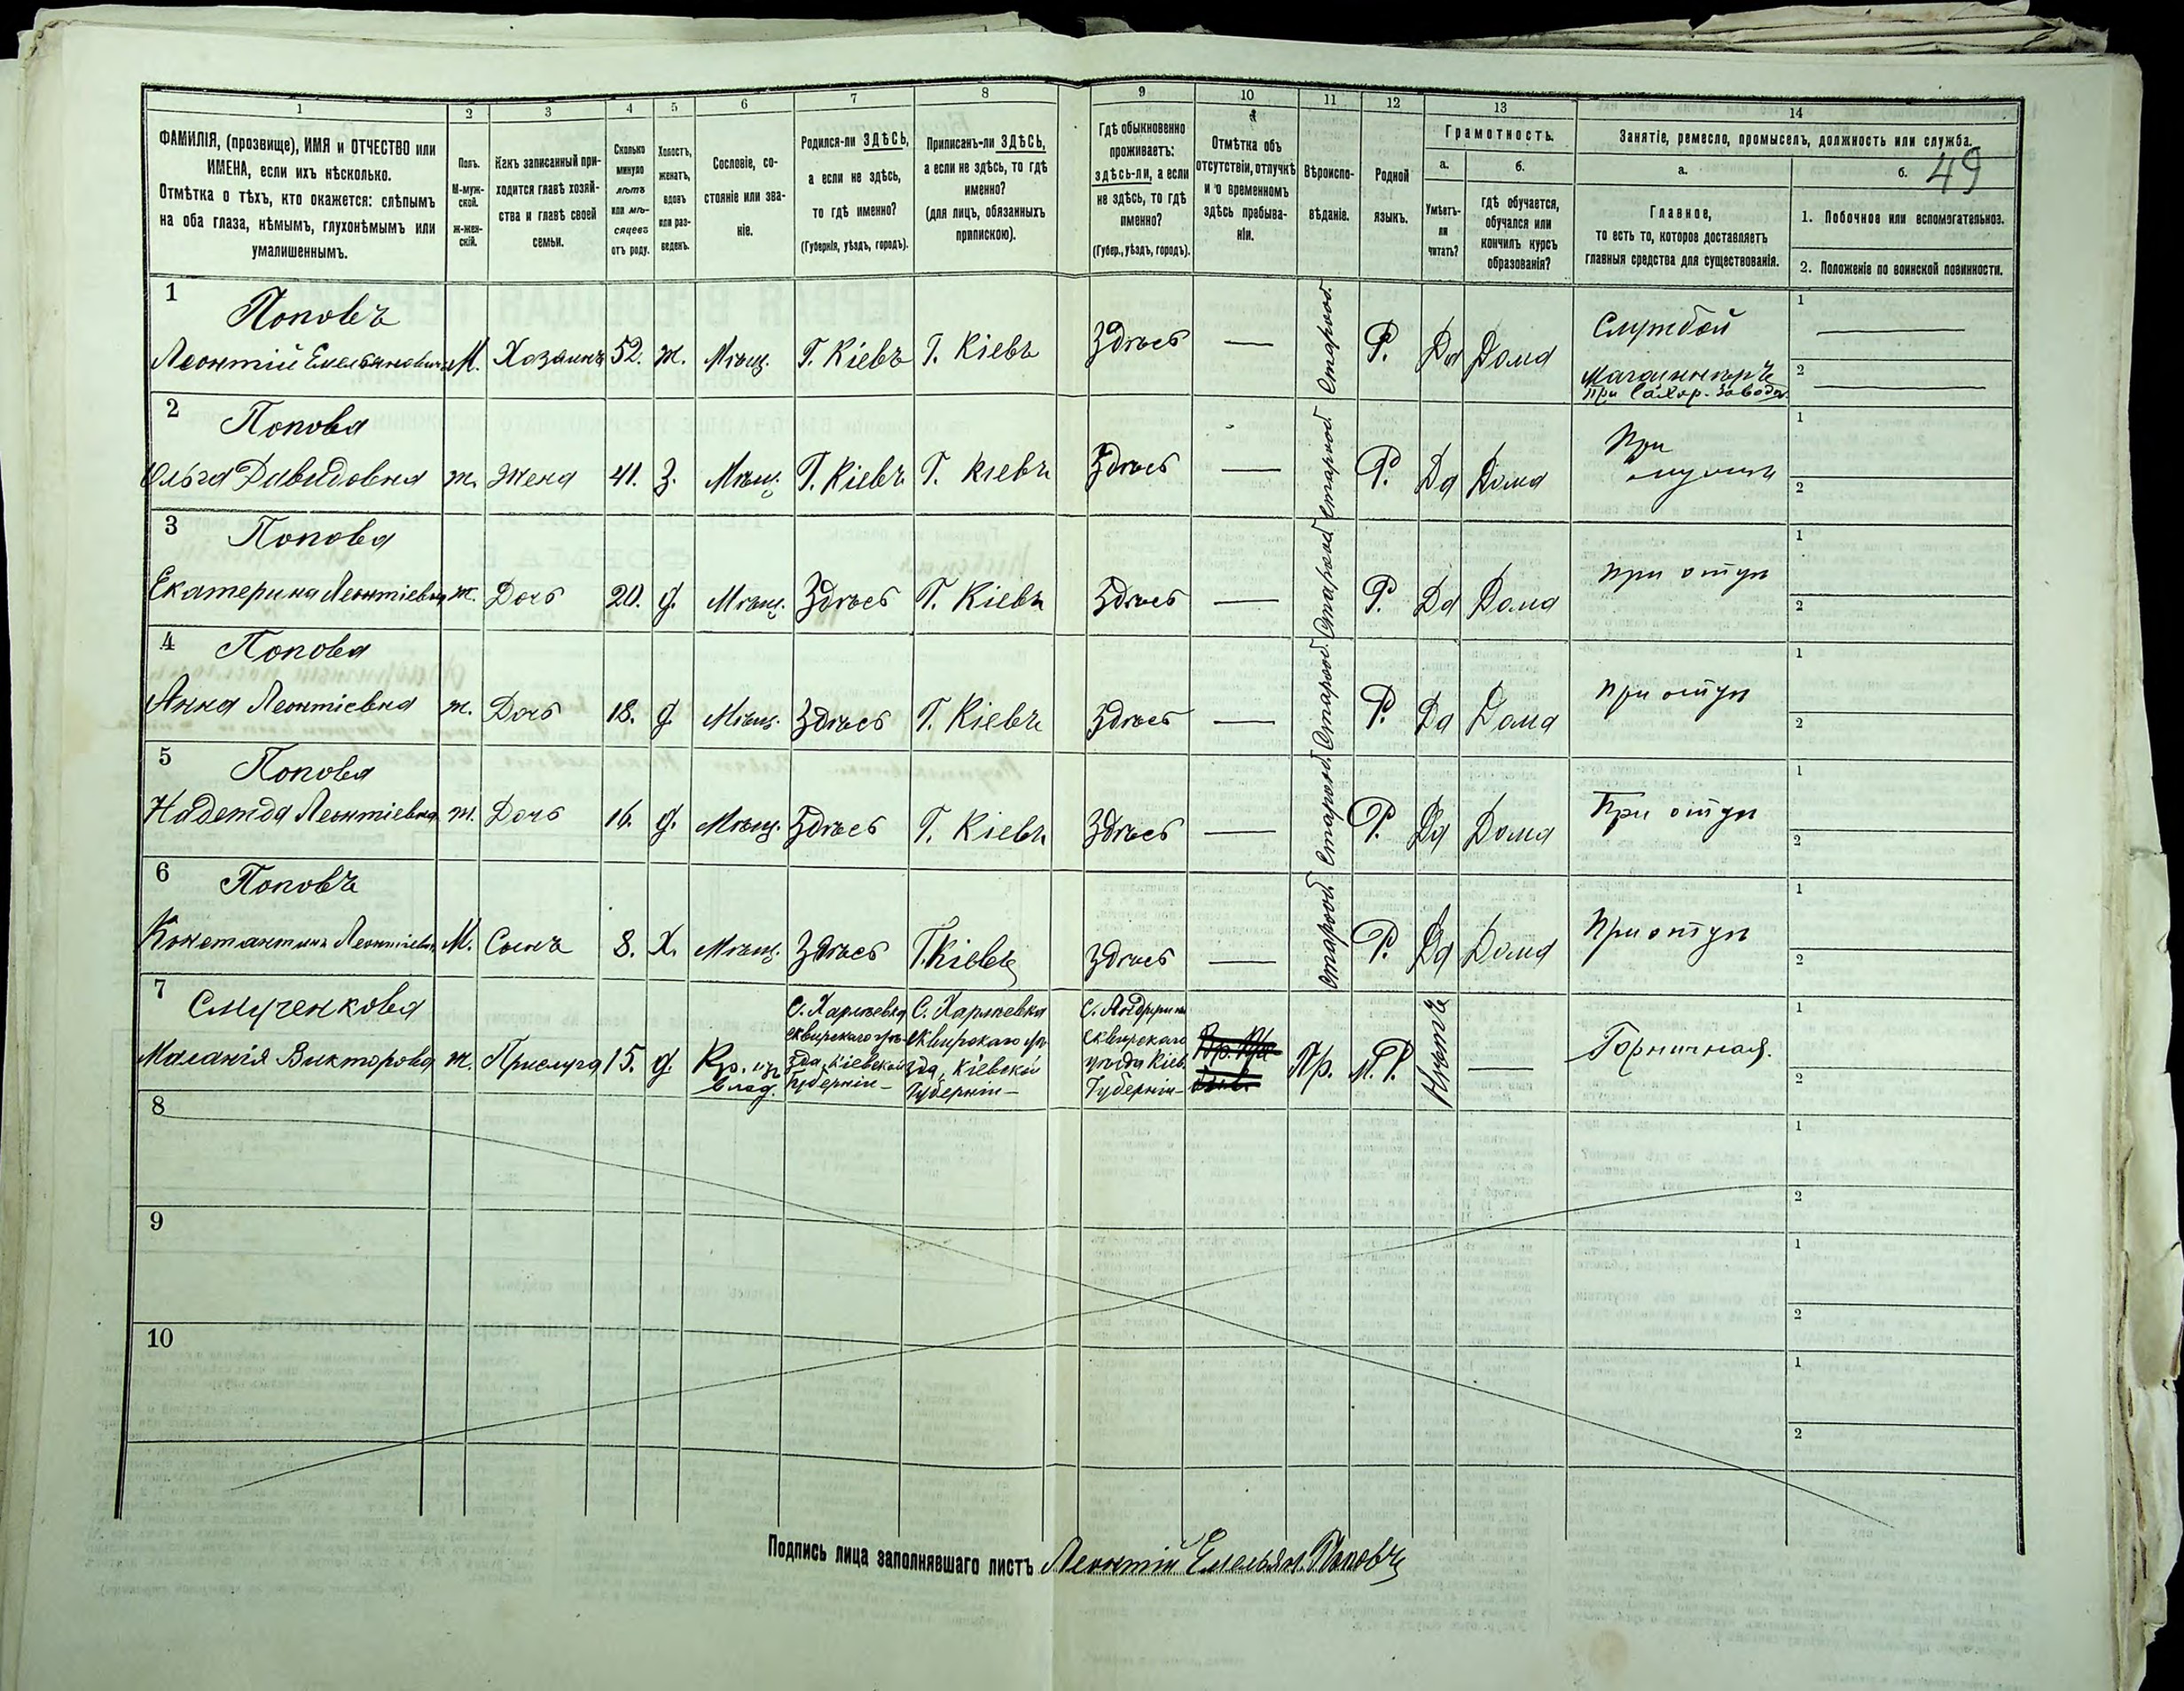 1 2 3 4 5 6 7 8 9 10 11 12 13 14
ФАМИЛІЯ, (прозвище), ИМЯ и ОТЧЕСТВО или
ИМЕНА, если ихъ нѣсколько.
Отмѣтка о тѣхъ, кто окажется: слѣпымъ
на оба глаза, нѣмымъ, глухонѣмымъ или
умалишеннымъ.
Полъ.
М-муж-
ской.
Ж-жен-
скій.
Какъ записанный при-
ходится главѣ хозяй-
ства и главѣ своей
семьи.
Сколько
минуло
лѣтъ
или мѣ-
сяцевъ
отъ роду.
Холостъ,
женатъ,
вдовъ
или раз-
веденъ.
Сословіе, со-
стояніе или зва-
ніе.
Родился-ли ЗДѢСЬ,
а если не здѣсь,
то гдѣ именно?
(Губернія, уѣздъ, городъ).
Приписанъ-ли ЗДѢСЬ,
а если не здѣсь, то гдѣ
именно?
(для лицъ, обязанныхъ
припискою).
Гдѣ обыкновенно
проживаетъ:
здѣсь-ли, а если
не здѣсь, то гдѣ
именно?
(Губер., уѣздъ, городъ).
Отмѣтка объ
отсутствіи, отлучкѣ
и о временномъ
здѣсь пребыва-
ніи.
Вѣроиспо-
вѣданіе.
Родной
языкъ.
Грамотность.
а.
Умѣетъ-
ли
читать?
б.
гдѣ обучается,
обучался или
кончилъ курсъ
образованія?
Занятіе, ремесло, промыселъ, должность или служба.
а.
Главное,
то есть то, которое доставляетъ
главныя средства для существованія.
б. 49
1. Побочное или вспомогательное.
2. Положеніе по воинской повинности.
1 Поповъ
Леонтій Емельяновичъ М. Хозаинъ 52. Ж. Мѣщ. Г. Кіевъ Г. Кіевъ Здѣсь — Старооб. Р. Да Дома Службой
Машинистъ
при Сахар. заводѣ
1 —
2 —
2 Попова
Ольга Давидовна Ж. Жена 41. З. Мѣщ. Г. Кіевъ Г. Кіевъ Здѣсь — Старооб. Р. Да Дома При
мужѣ
1
2
3 Попова
Екатерина Леонтіевна Ж. Дочь 20. Д. Мѣщ. Здѣсь Г. Кіевъ Здѣсь — Старооб. Р. Да Дома При отцѣ
1
2
4 Попова
Анна Леонтіевна Ж. Дочь 18. Д. Мѣщ. Здѣсь Г. Кіевъ Здѣсь — Старооб. Р. Да Дома При отцѣ
1
2
5 Попова
Надежда Леонтіевна Ж. Дочь 16. Д. Мѣщ. Здѣсь Г. Кіевъ Здѣсь — Старооб. Р. Да Дома При отцѣ
1
2
6 Поповъ
Константинъ Леонтіевич М. Сынъ 8. Х. Мѣщ. Здѣсь Г. Кіевъ Здѣсь — Старооб. Р. Да Дома При отцѣ
1
2
7 Смученкова
Маланія Викторова Ж. Прислуга 15. Д. Кр. изъ
влад.
С. Харлѣевка
Сквирскаго уѣ-
зда, Кіевской
Губерніи—
С. Харлѣевка
Сквирскаго уѣ-
зда, Кіевской
Губерніи—
Сквирскаго
уѣзда Кіев.
Губерніи—
Пр. М.Р. Нѣтъ — Горничная.
1
2
8
1
2
9
1
2
10
1
2
Подпись лица заполнявшаго листъ Леонтій Емельян. Поповъ